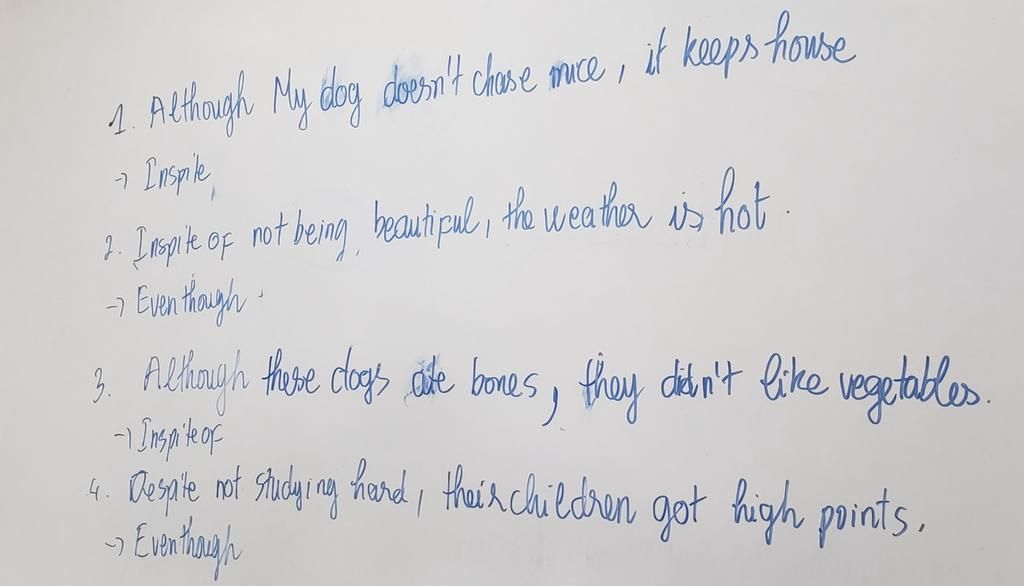 1. Although My dog doesn't chase mice, it keeps house
→ Inspite
2. Inspite of not being beautiful, the weather is hot.
→ Eventhough
3. Although these dogs ate bones, they didn't like vegetables.
→ Inspite of
4. Despite not studying hard, their children got high points.
→ Eventhough